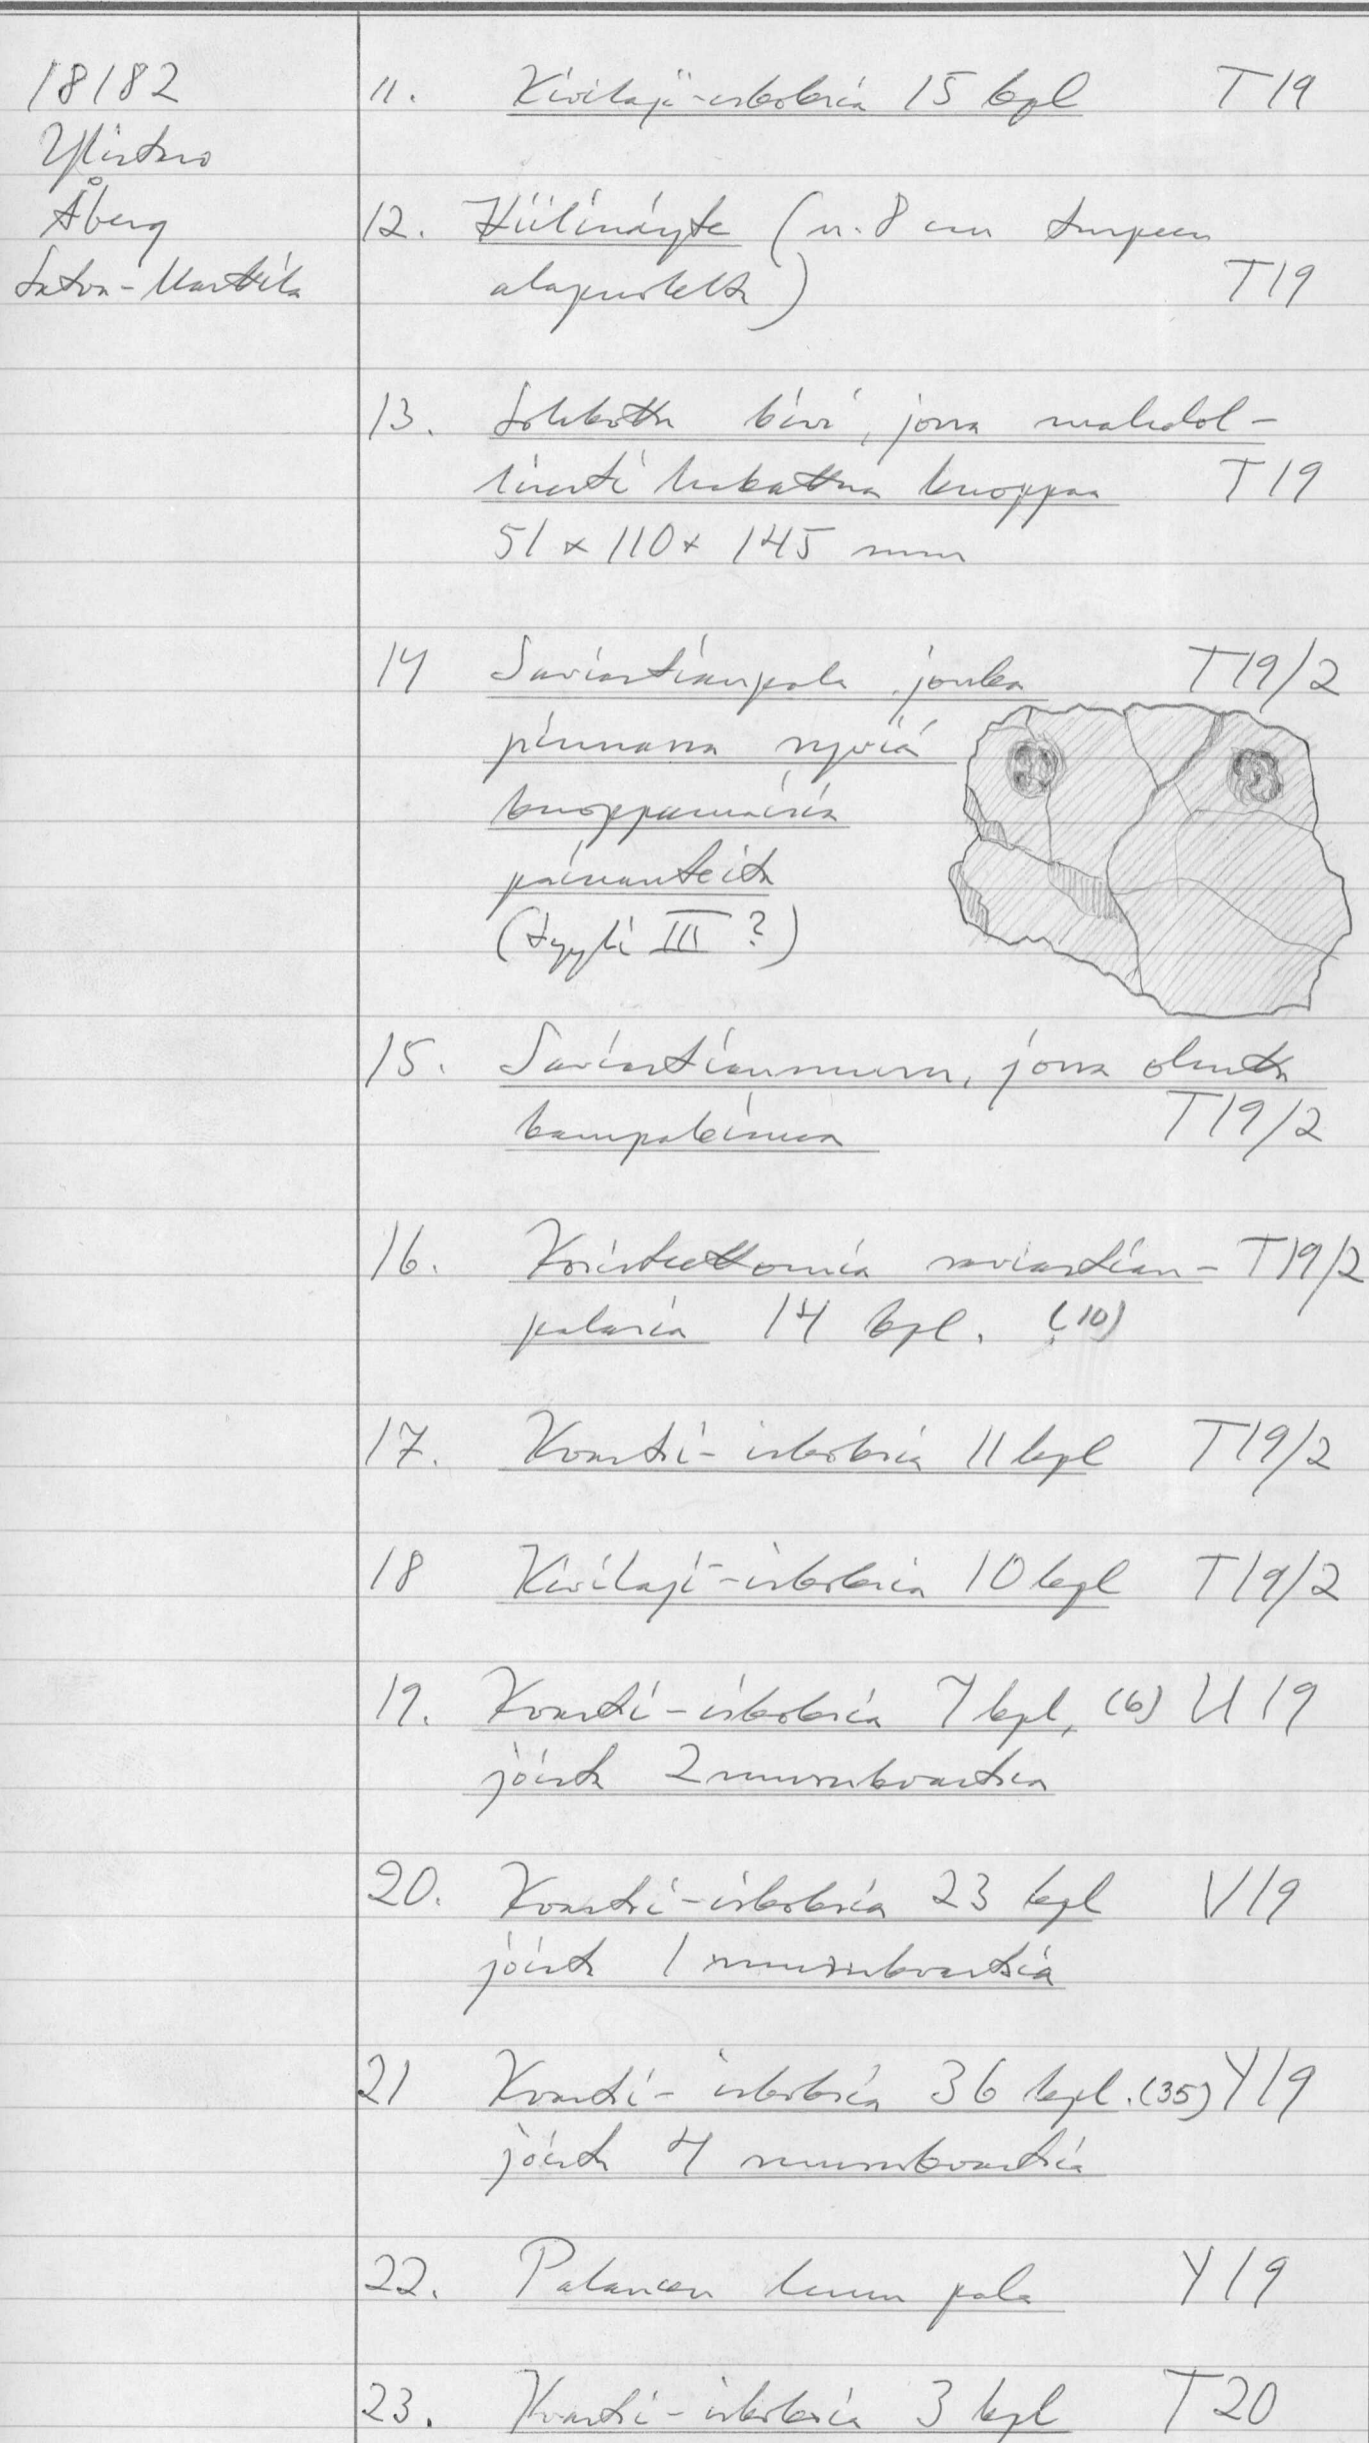 18182
Ylistaro
Åberg
Satva-Marttila
11. Kivilaji-iskoksia 15 kpl T19
12. Hiilinäyte (n. 8 cm turpeen
alapuolelta) T19
13. Lohkottu kivi, jossa mahdol-
lisesti hakattua kuoppaa T19
51 x 110 x 145 mm
14 Saviastianpala jonka T19/2
pinnassa syviä
kuoppamaisia
painanteita
(tyyli III ?)
15. Saviastianmuru, jossa ohutta
kampaleimaa T19/2
16. Koristeettomia saviastian- T19/2
paloja 14 kpl. (10)
17. Kvartsi-iskoksia 11 kpl T19/2
18 Kivilaji-iskoksia 10 kpl T19/2
19. Kvartsi-iskoksia 7 kpl, (6) U19
joista 2 murukvartsia
20. Kvartsi-iskoksia 23 kpl V19
joista 1 murukvartsia
21 Kvartsi-iskoksia 36 kpl. (35) Y19
joista 4 murukvartsia
22. Palaneen luun pala Y19
23. Kvartsi-iskoksia 3 kpl T20